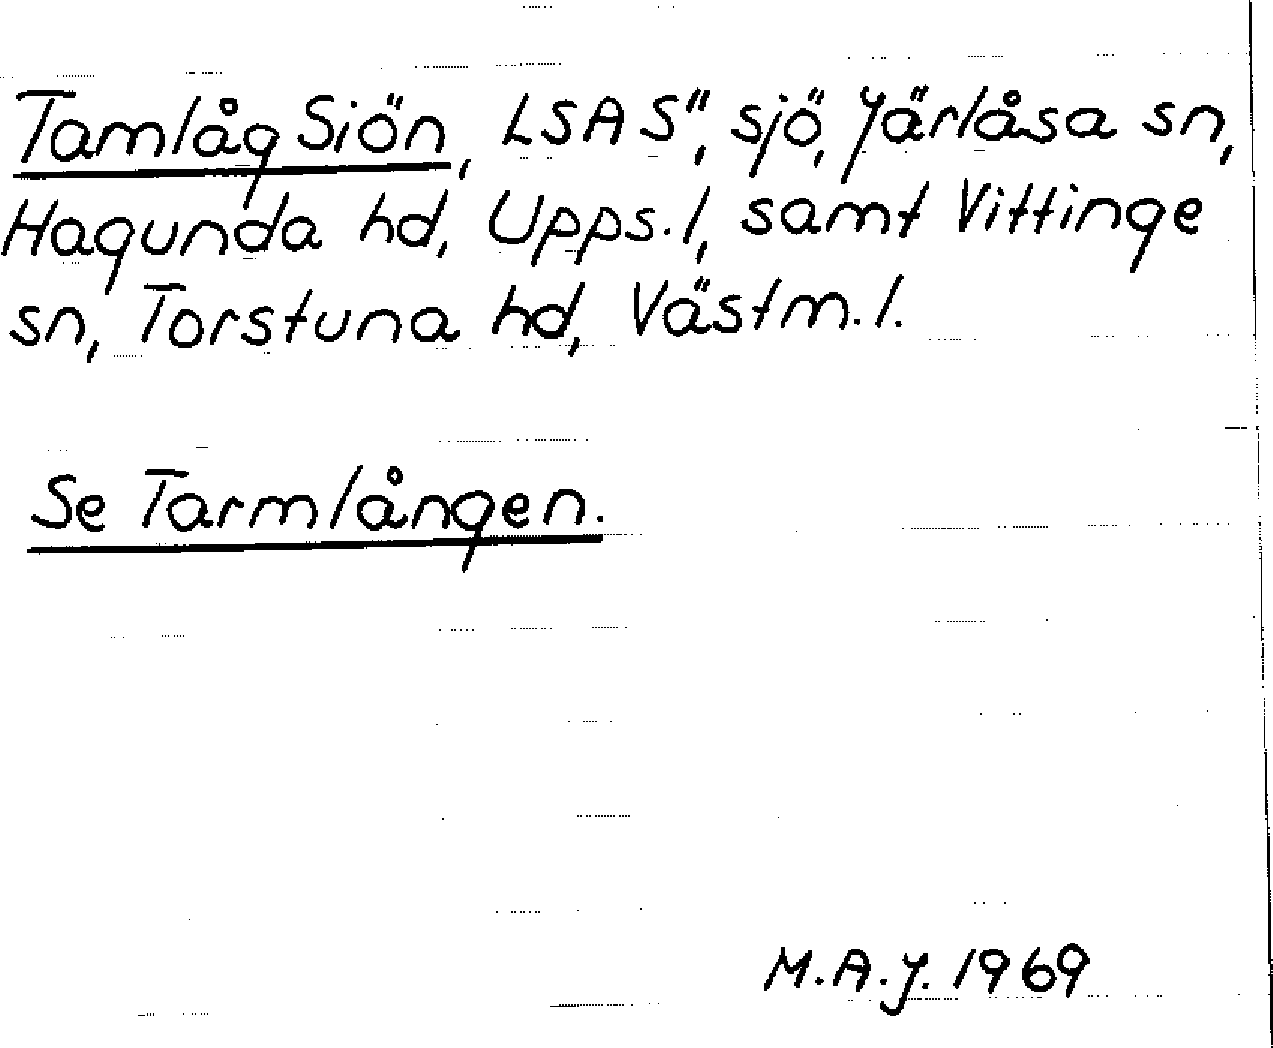 Tamlåg Siön, LSAS", sjö, Järlåsa sn,
Hagunda hd, Upps. l, samt Vittinge
sn, Torstuna hd, Västm. l.
Se Tarmlången.
M.A.J. 1969